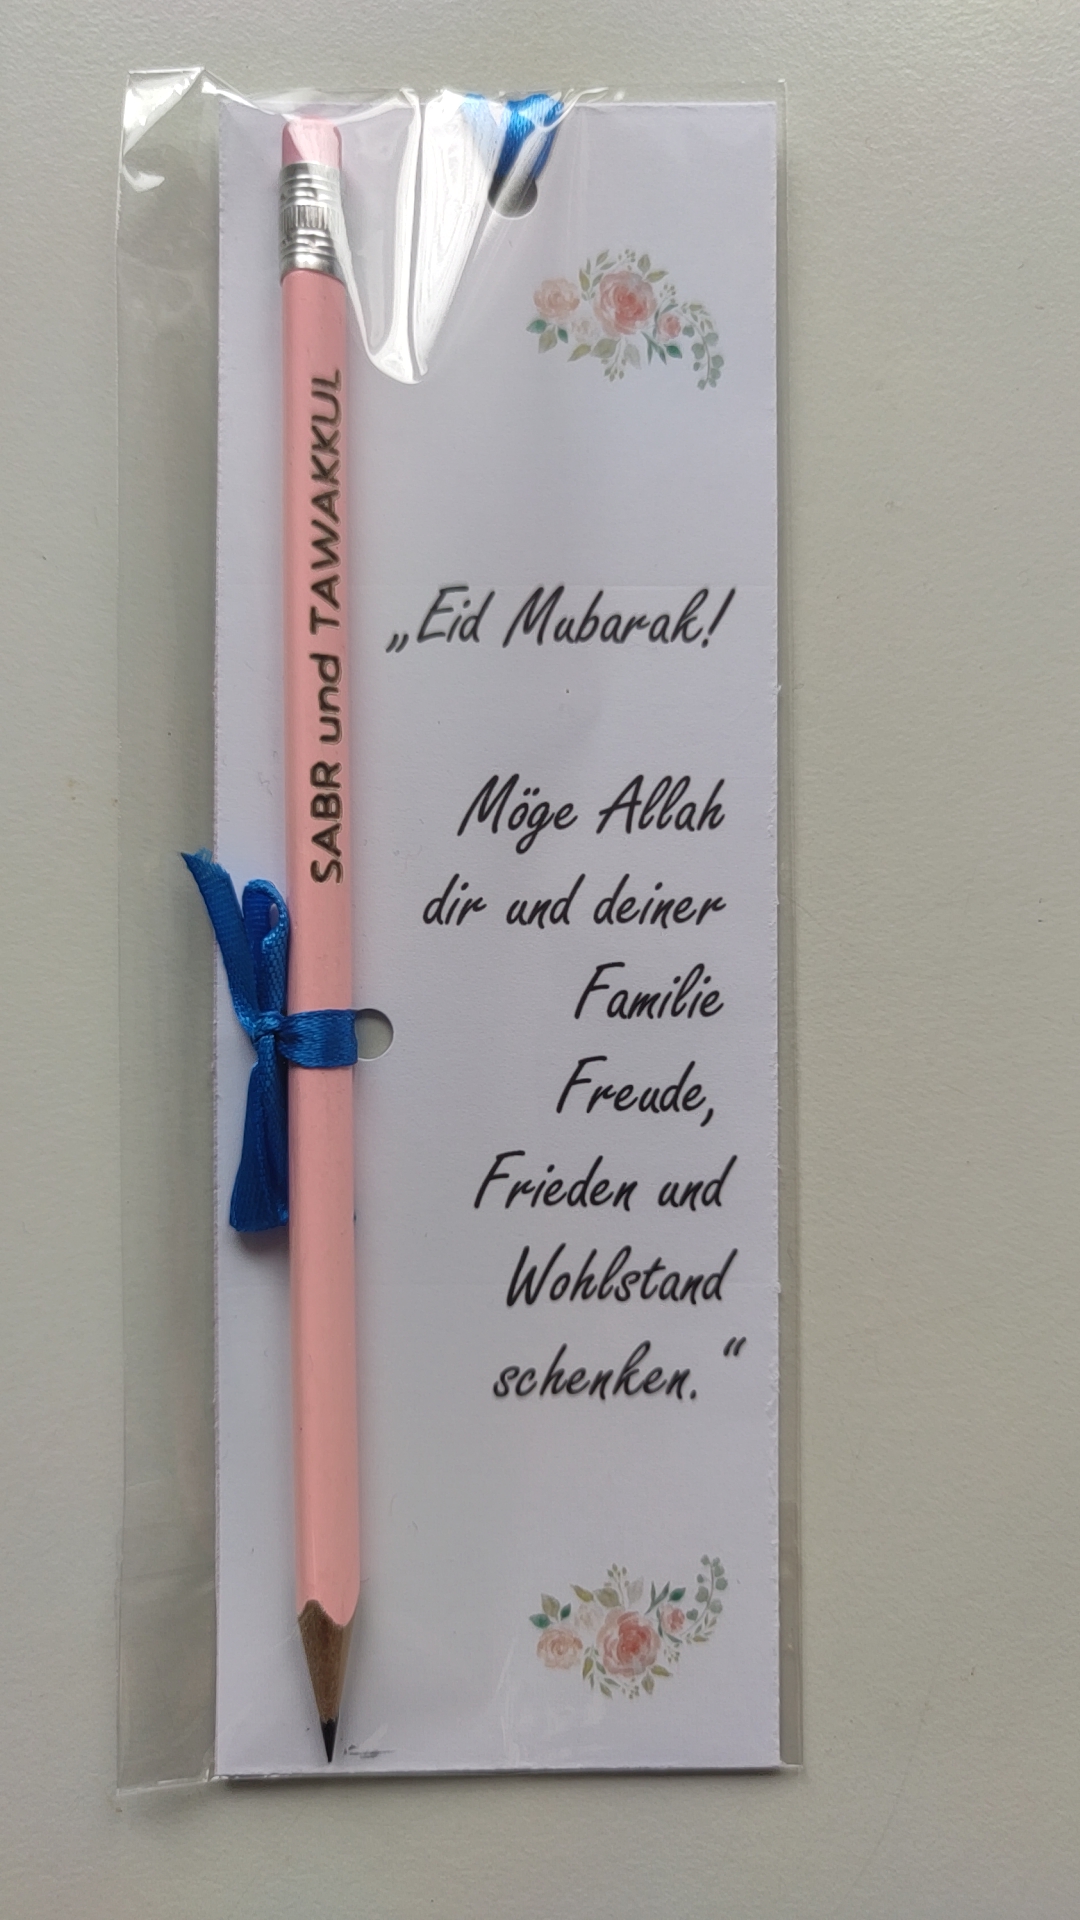 SABR und TAWAKKUL
„Eid Mubarak!
Möge Allah
dir und deiner
Familie
Freude,
Frieden und
Wohlstand
schenken.“